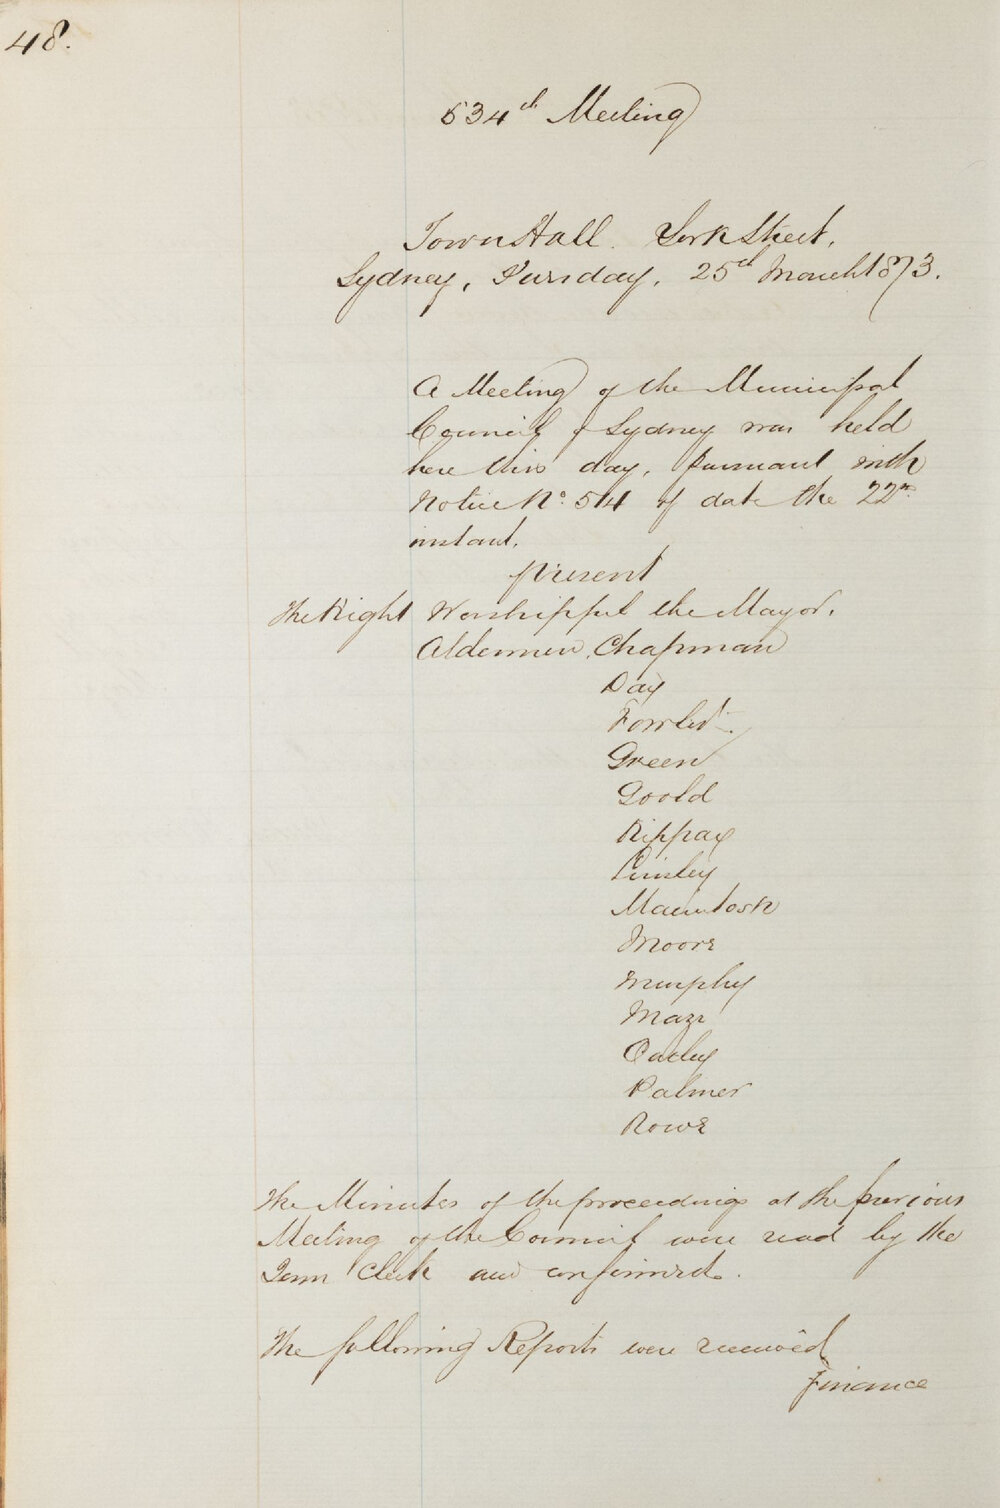 48.
534th Meeting
Town Hall. York Street,
Sydney, Tuesday, 25th March 1873.
A Meeting of the Municipal
Council of Sydney was held
here this day, pursuant with
Notice No. 514 of date the 22nd
instant.
present
The Right Worshipful the Mayor.
Aldermen, Chapman
Day
Fowler
Green
Goold
Kippax
Linsley
Macintosh
Moore
Murphy
Maze
Oatley
Palmer
Rowe
The Minutes of the proceedings at the previous
Meeting of the Council were read by the
Town Clerk and confirmed.
The following Reports were received
Finance